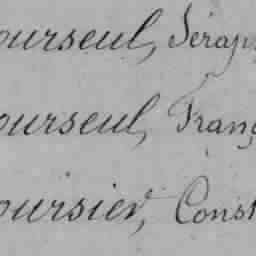 ourseul, Séraph
ourseul, Franç
oursier, Const